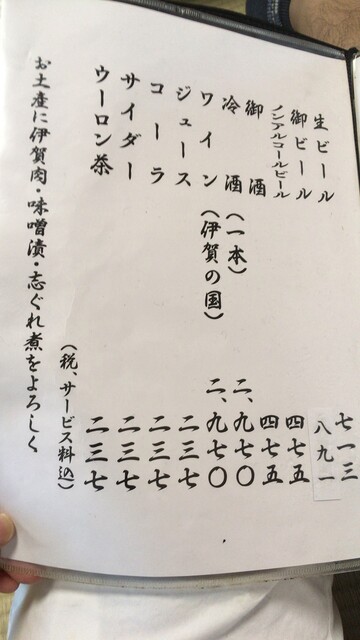 生ビール 七一三
御ビール 八九一
ノンアルコールビール 四七五
御酒 四七五
冷酒(一本) 二、九七〇
ワイン(伊賀の国) 二、九七〇
ジュース 二三七
コーラ 二三七
サイダー 二三七
ウーロン茶 二三七
(税、サービス料込)
お土産に伊賀肉・味噌漬・志ぐれ煮をよろしく